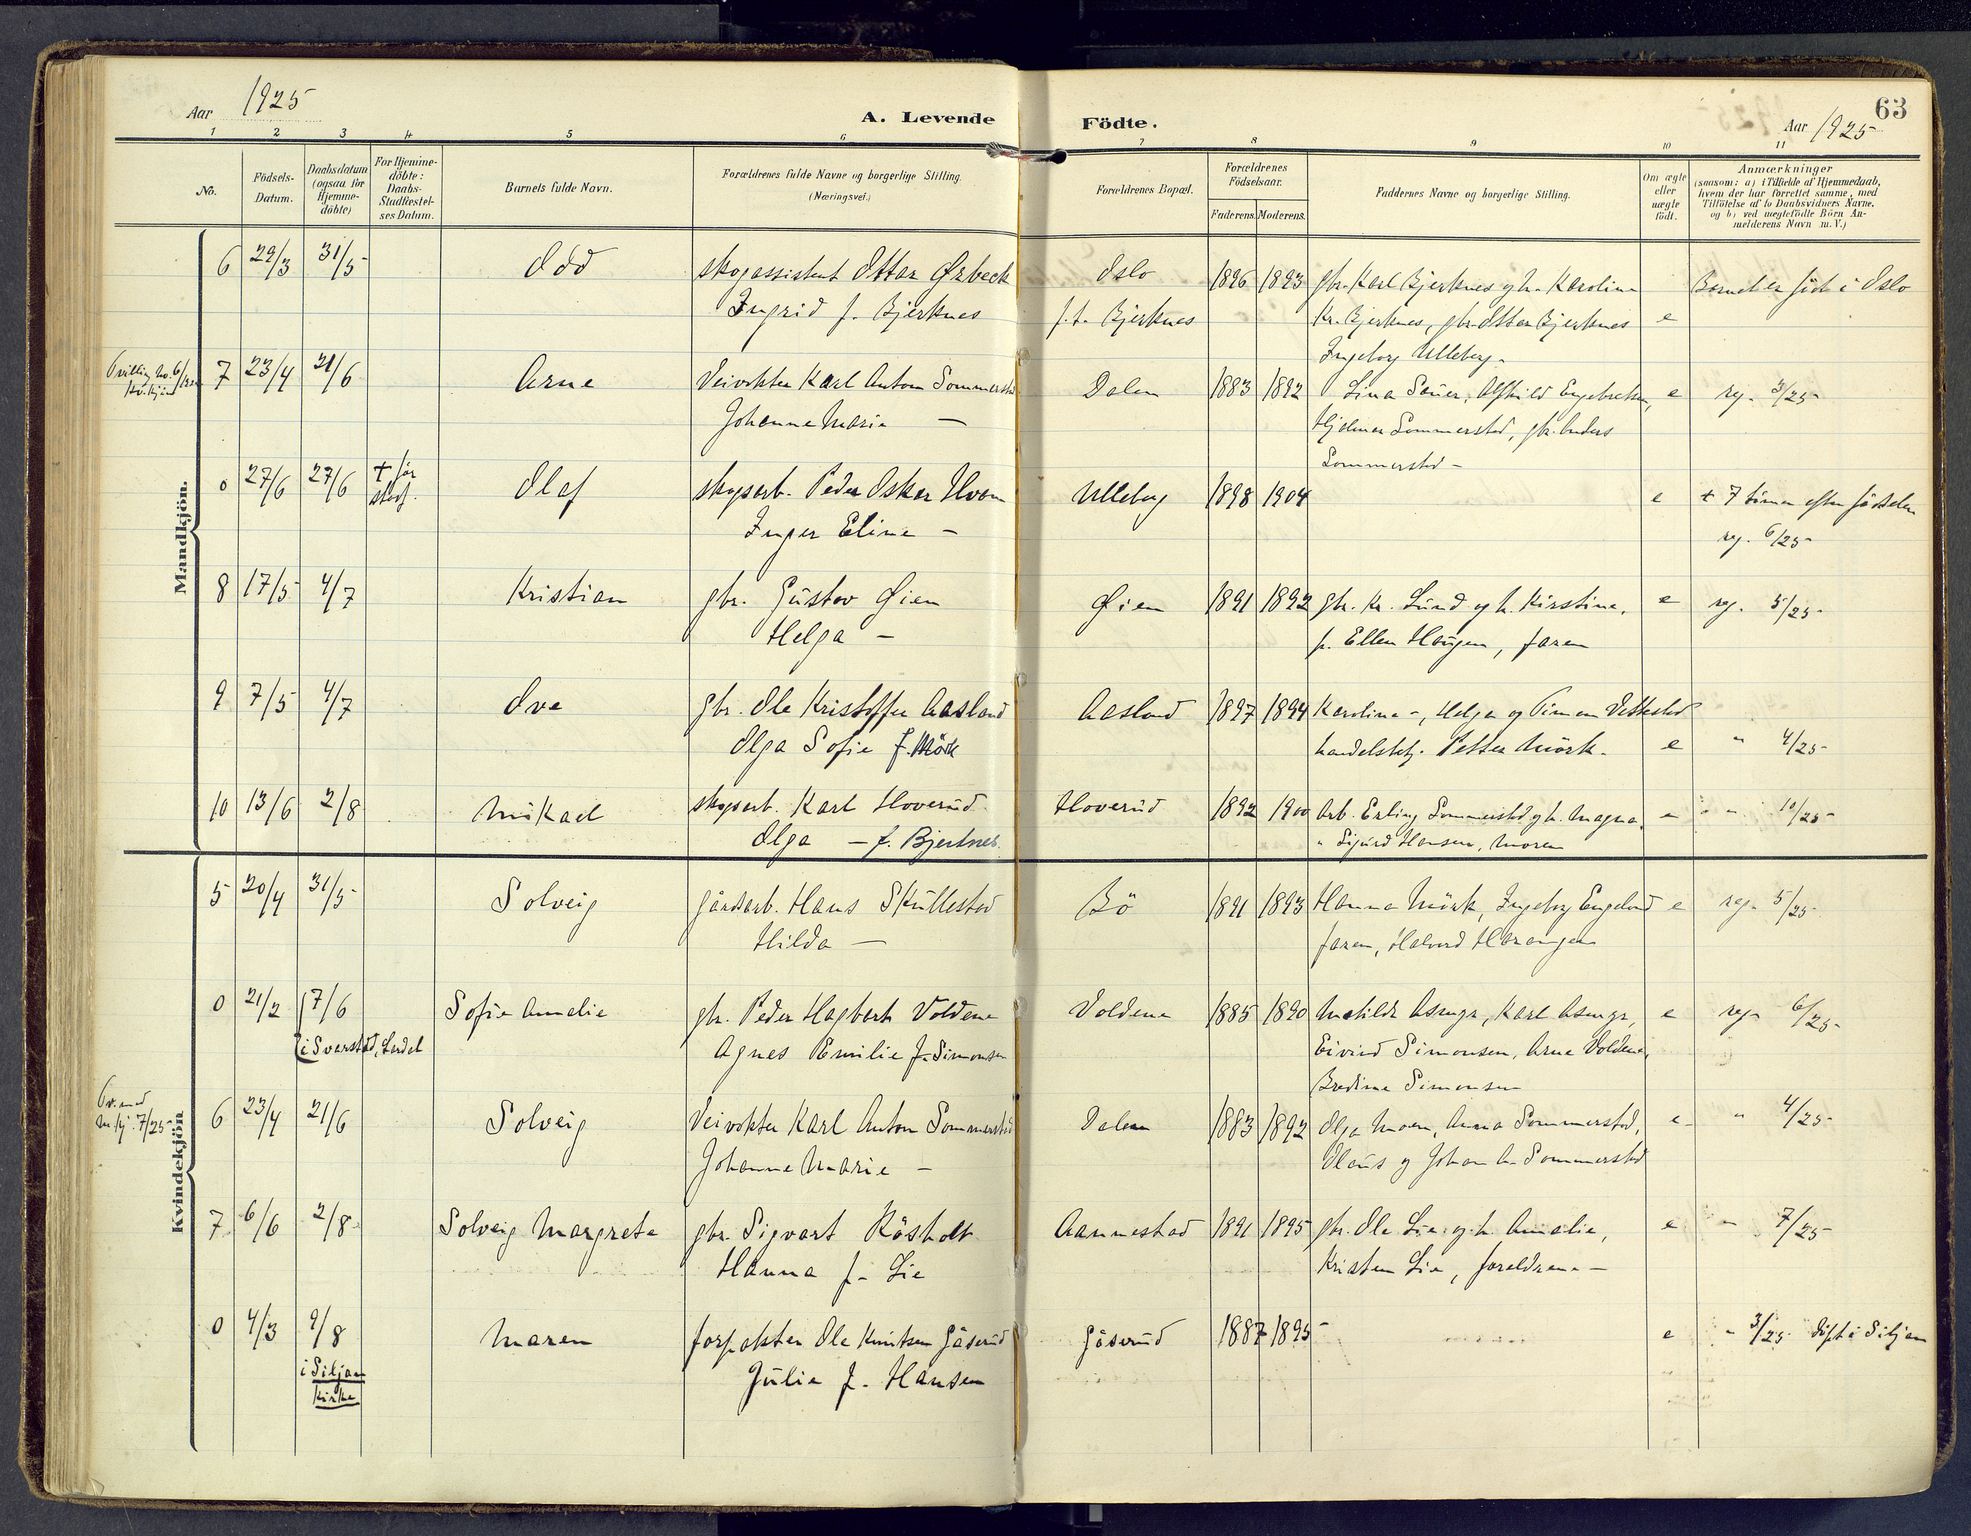 Aar 1925
A. Levende Födte.
Aar 1925
63
1 2 3 4 5 6 7 8 9 10 11
No.
Födsels-
Datum.
Daabsdatum
(ogsaa for
Hjemme-
döbte)
For Hjemme-
döbte:
Daabs-
Stadfæstel-
ses Datum.
Barnets fulde Navn.
Forældrenes fulde Navne og borgerlige Stilling.
(Næringsvei.)
Forældrenes Bopæl.
Forældrenes
Födselsaar.
Faderens. Moderens.
Faddernes Navne og borgerlige Stilling.
Om ægte
eller
uægte
födt.
Anmærkninger
(saasom: a) i Tilfælde af Hjemmedaab,
hvem der har forrettet samme, med
Tilföielse af to Daabsvidners Navne,
og b) ved uægtefödte Börn An-
melderens Navn m. V.)
Mandkjön.
6 29/3 31/5 Odd skogassistent Ottar Ørbeck Oslo 1896 1893 gbr. Karl Bjerknes og h. Karoline Barnet er født i Oslo
Ingrid f. Bjerknes f.t. Bjerknes Kr. Bjerknes, gbr. Otter Bjerknes e
Ingeborg Ulleberg.
Tvilling No. 6/1925
kv.kjøn
7 23/4 21/6 Arne Veivokter Karl Anton Sommerstad Dalen 1883 1892 Lina Sauer, Alfhild Engebretsen, e reg. 3/25
Johanne Marie — Hjalmar Sommerstad, gbr. Anders
Sommerstad
0 27/6 27/6 + før stadf. Olaf skogarb. Peder Oskar Hvam Ulleberg 1898 1904 e + 7 timer efter fødselen
Inger Eline — reg. 6/25
8 17/5 4/7 Kristian gbr. Gustav Øien Øien 1891 1892 gbr. Kr. Lund og h. Kirstine, e reg. 5/25
Helga — p. Ellen Haugen, faren
9 7/5 4/7 Ove gbr. Ole Kristoffer Aasland Aasland 1897 1894 Karoline —, Helga og Simen Vettestad
Olga Sofie f. Mörk handelsbetj. Petter Mörk. e " 4/25
10 13/6 2/8 Mikael skogarb. Karl Hoverud Hoverud 1892 1900 Arb. Erling Sommerstad og h. Magna, e " 10/25
Olga — f. Bjertnes " Sigurd Hansen, moren
Kvindekjön
5 20/4 31/5 Solveig gårdsarb. Hans Skullestad Bö 1891 1893 Hanna Mörk, Ingeborg Engelund e reg. 5/25
Hilda — faren, Halvord Harangen
0 21/2 7/6 Sofie Amalie gbr. Peder Hagbart Voldene Voldene 1885 1890 Matilde Asmyr, Karl Asmyr, e reg. 6/25
(i Svarstad, Lardal Agnes Emilie f. Simonsen Eivind Simonsen, Arne Voldene,
Bredine Simonsen
Tv. med
m.kj. 7/25
6 23/4 21/6 Solveig Veivokter Karl Anton Sommerstad Dalen 1883 1892 Olga Moen, Anna Sommerstad, e " 4/25
Johanne Marie — Olaus og Johan A. Sommerstad
7 6/6 2/8 Solveig Margrete gbr. Sigvart Råsholt Aannestad 1891 1895 gbr. Ole Lie og h. Amalie, e " 7/25
Hanna f. Lie Kristen Lie, foreldrene
0 4/3 9/8 Maren forpakter Ole Knutsen Gåserud Gåserud 1887 1895 — e " 3/25 døpt i Siljan
i Siljan
kirke Julie f. Hansen